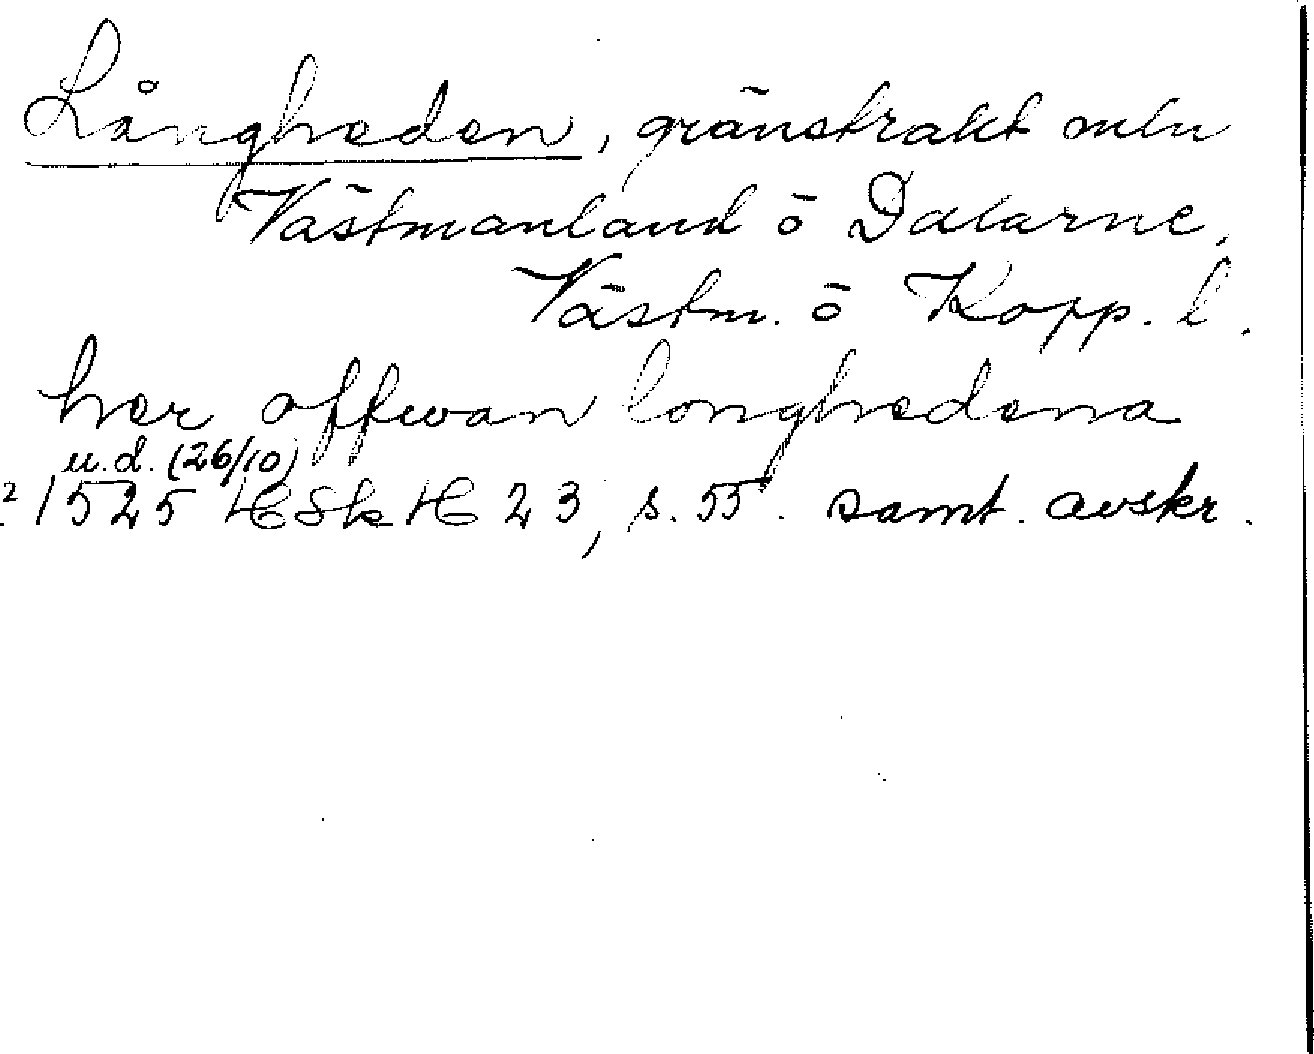 Långheden, gränstrakt mln
Västmanland ō Dalarne,
Västm. ō Kopp. l.
her offwan longhedena
u.d. (26/10)
2 1525 HSkH 23, s. 55. samt. avskr.